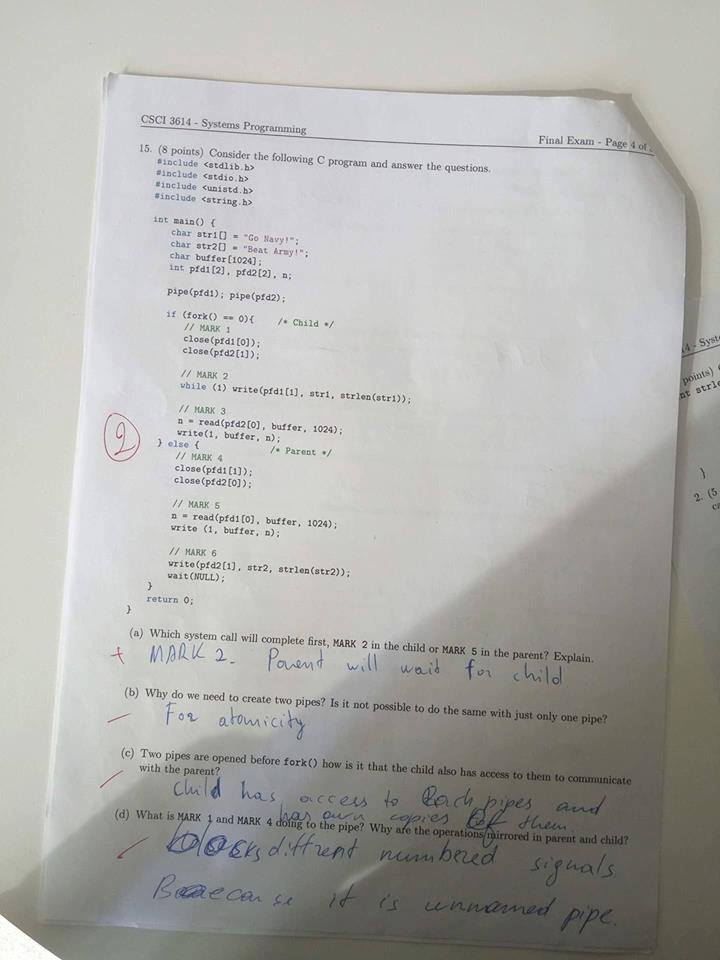 CSCI 3614 - Systems Programming
Final Exam - Page 4 of
15. (8 points) Consider the following C program and answer the questions.
#include <stdlib.h>
#include <stdio.h>
#include <unistd.h>
#include <string.h>
int main() {
char str1[] = "Go Navy!";
char str2[] = "Beat Army!";
char buffer[1024];
int pfd1[2], pfd2[2], n;
pipe(pfd1); pipe(pfd2);
if (fork() == 0){ /* Child */
// MARK 1
close(pfd1[0]);
close(pfd2[1]);
// MARK 2
while (1) write(pfd1[1], str1, strlen(str1));
// MARK 3
n = read(pfd2[0], buffer, 1024);
write(1, buffer, n);
} else { /* Parent */
// MARK 4
close(pfd1[1]);
close(pfd2[0]);
// MARK 5
n = read(pfd1[0], buffer, 1024);
write (1, buffer, n);
// MARK 6
write(pfd2[1], str2, strlen(str2));
wait(NULL);
}
return 0;
}
2
(a) Which system call will complete first, MARK 2 in the child or MARK 5 in the parent? Explain.
+ MARK 2. Parent will wait for child
(b) Why do we need to create two pipes? Is it not possible to do the same with just only one pipe?
For atomicity
(c) Two pipes are opened before fork() how is it that the child also has access to them to communicate
with the parent?
child has access to pipes and
has own copies of them
(d) What is MARK 1 and MARK 4 doing to the pipe? Why are the operations mirrored in parent and child?
blocks different numbered signals.
Because it is unnamed pipe.
4 - Syst
points)
nt strle
}
2. (5